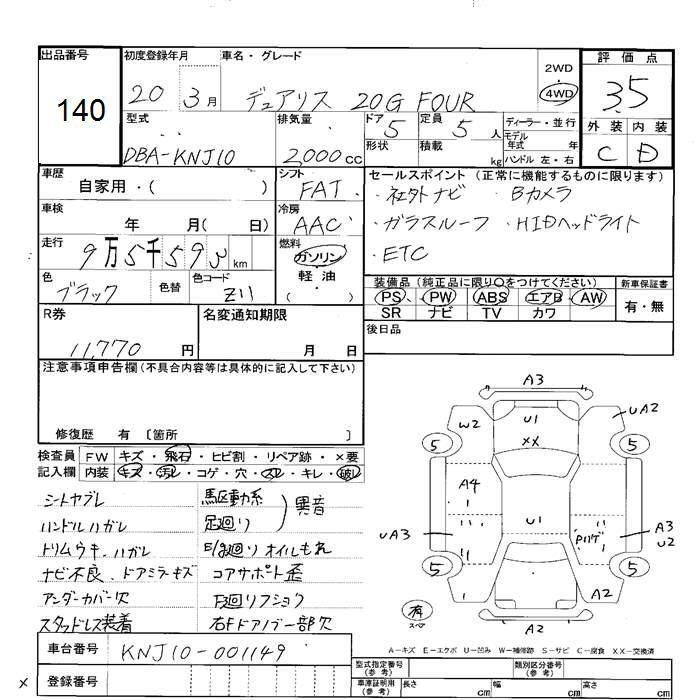 出品番号 初度登録年月 車名・グレード 評価点
140 20 3月 デュアリス 20G FOUR 2WD ・ 4WD 3.5
型式 排気量 ドア 定員 ディーラー・並行 外装 内装
DBA-KNJ10 2,000cc 5 形状 5人 積載 kg モデル年式 年 ハンドル 左・右 C D
車歴 自家用・( ) シフト FAT セールスポイント (正常に機能するものに限ります)
・社外ナビ ・Bカメラ
車検 年 月( 日) 冷房 AAC ・ガラスルーフ ・HIDヘッドライト
走行 9万5千593km 燃料 ガソリン・軽油・( ) ・ETC
色 ブラック 色替 色コード Z11 装備品 (純正品に限り○をつけてください) 新車保証書
PS・PW・ABS・エアB・AW 有・無
SR ナビ TV カワ
R券 11,770円 名変通知期限 月 日 後日品
注意事項申告欄(不具合内容等は具体的に記入して下さい)
修復歴 有 〔箇所 〕
検査員 FW キズ・飛石・ヒビ割・リペア跡・×要
記入欄 内装 キズ・汚レ・コゲ・穴・スレ・キレ・破レ
シートヤブレ 駆動系
ハンドルハガレ 足廻り 異音
ドリムウキ、ハガレ E/g廻りオイルもれ
ナビ不良、ドアミラーキズ コアサポート歪
アンダーカバー欠 下廻りフショク
スタッドレス装着 右Fドアノブ一部欠
A3
W2 U1 UA2
XX
5 5
A4
UA3 U1 Pハゲ A3
U2
5 5
A2
有
スペア A2
A−キズ E−エクボ U−凹み W−補修跡 S−サビ C−腐食 XX−交換済
車台番号 KNJ10-001149
× 登録番号
型式指定番号(参考) 類別区分番号(参考)
車庫証明用(参考) 長さ cm 幅 cm 高さ cm